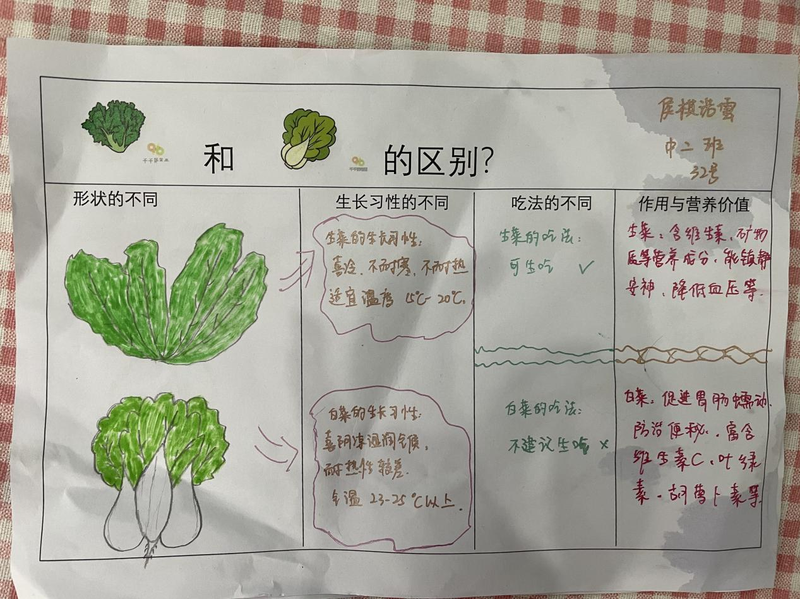 和
的区别?
中二班
32号
形状的不同
生长习性的不同
吃法的不同
作用与营养价值
生菜的生长习性:
喜冷、不耐寒、不耐热
适宜温度 15℃-20℃.
生菜的吃法:
可生吃 ✓
生菜:含维生素、矿物
质等营养成分,能镇静
安神、降低血压等.
白菜的生长习性:
喜阴凉湿润气候,
耐热性较差.
气温 23-25℃以上.
白菜的吃法:
不建议生吃 ×
白菜:促进胃肠蠕动.
防治便秘、富含
维生素C、叶绿
素、胡萝卜素等